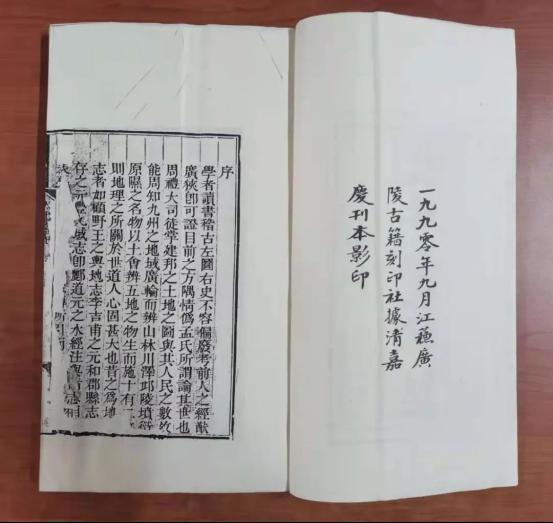 一九九零年九月江蘓廣
陵古籍刻印社據清嘉
慶刊本影印
序
學者讀書稽古左圖右史不容偏廢考前人之經猷
廣狹卽可證目前之方隅情僞孟氏所謂論其世也
周禮大司徒掌建邦之土地之圖與其人民之數
能周知九州之地域廣輪而辨山林川澤邱陵墳
原隰之名物以土會辨五地之物生而施十有
則地理之所關於世道人心固甚大也昔之爲地
志者如顧野王之輿地志李吉甫之元和郡縣志
存之城志卽酈道元之水經注與志